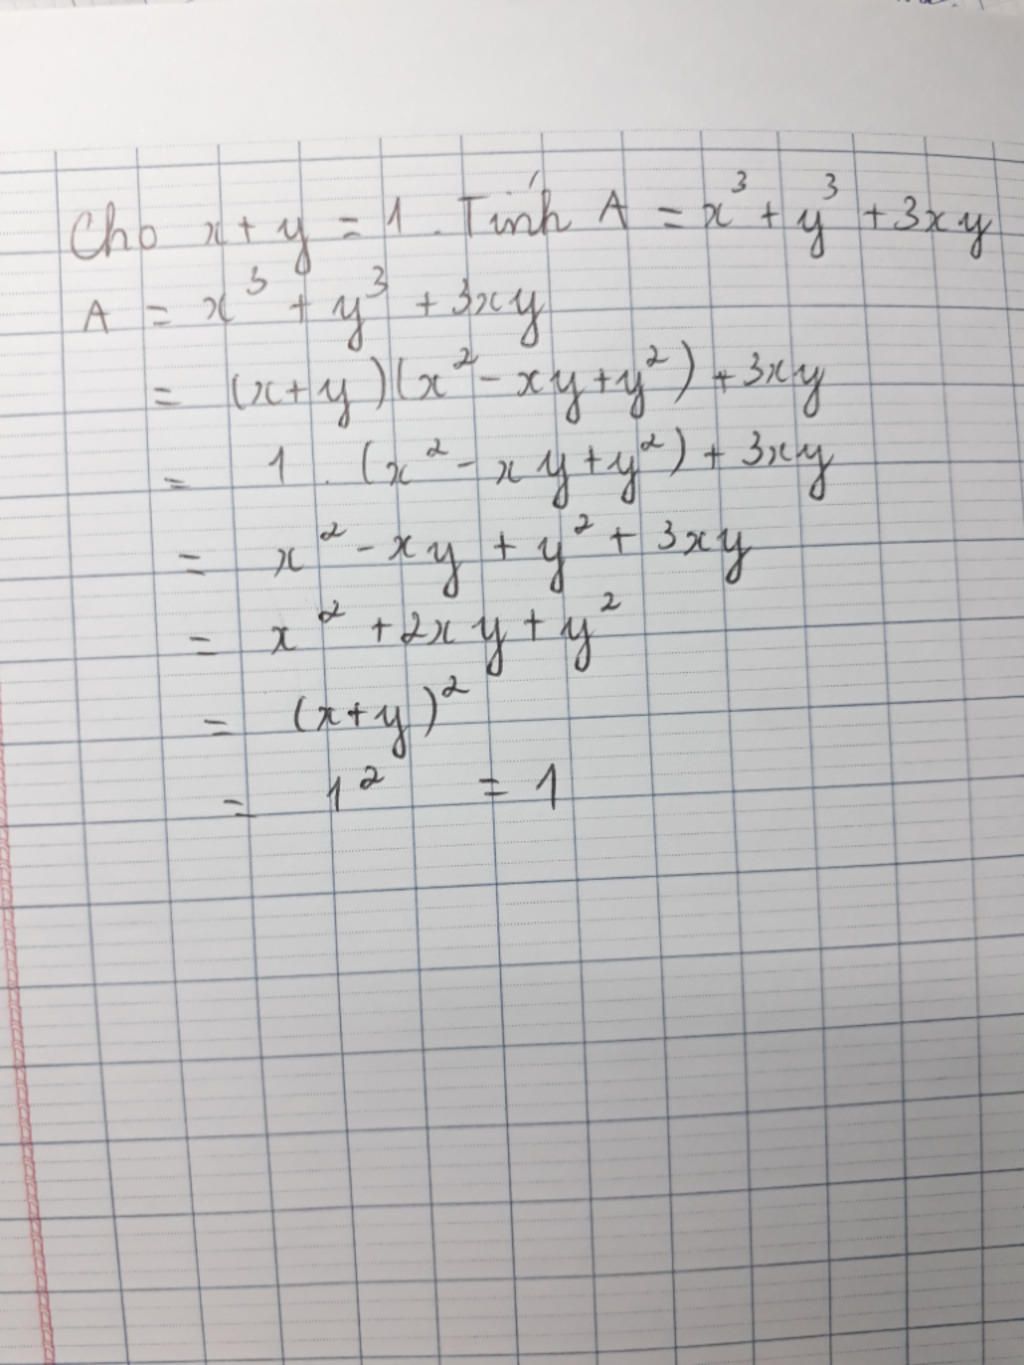 Cho x + y = 1. Tính A = x³ + y³ + 3xy
A = x³ + y³ + 3xy
= (x+y)(x² - xy + y²) + 3xy
= 1 . (x² - xy + y²) + 3xy
= x² - xy + y² + 3xy
= x² + 2xy + y²
= (x+y)²
= 1² = 1